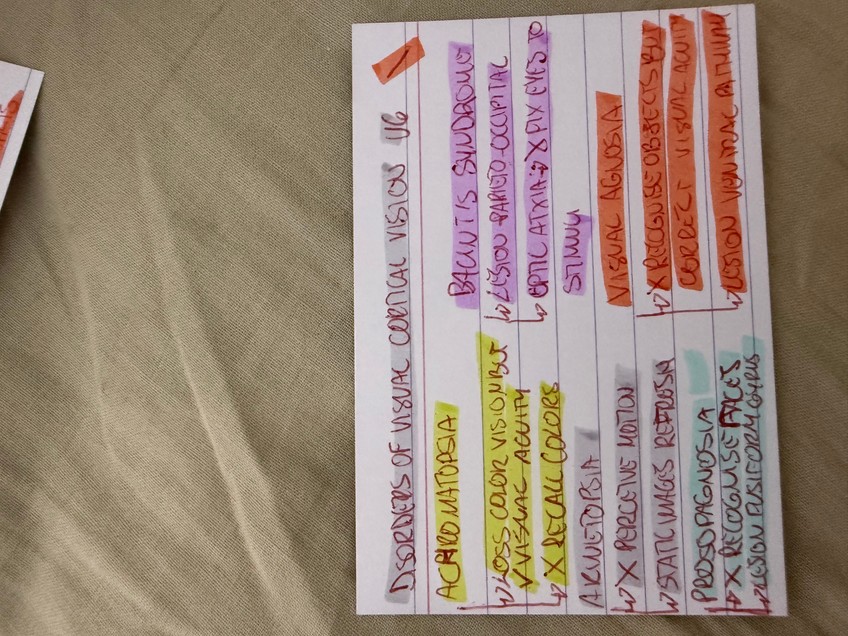 DISORDERS OF VISUAL CORTICAL VISION U6
ACHROMATOPSIA
↳ LOSS COLOR VISION BUT
✓ VISUAL ACUITY
↳ X RECALL COLORS
AKINETOPSIA
↳ X PERCEIVE MOTION
↳ STATIC IMAGES REFRESH
PROSOPAGNOSIA
↳ X RECOGNISE FACES
↳ LESION FUSIFORM GYRUS
BALINT'S SYNDROME
↳ LESION PARIETO-OCCIPITAL
↳ OPTIC ATXIA → X FIX EYES TO
STIMULI
VISUAL AGNOSIA
↳ X RECOGNISE OBJECTS BUT
CORRECT VISUAL ACUITY
↳ LESION VENTRAL PATHWAY